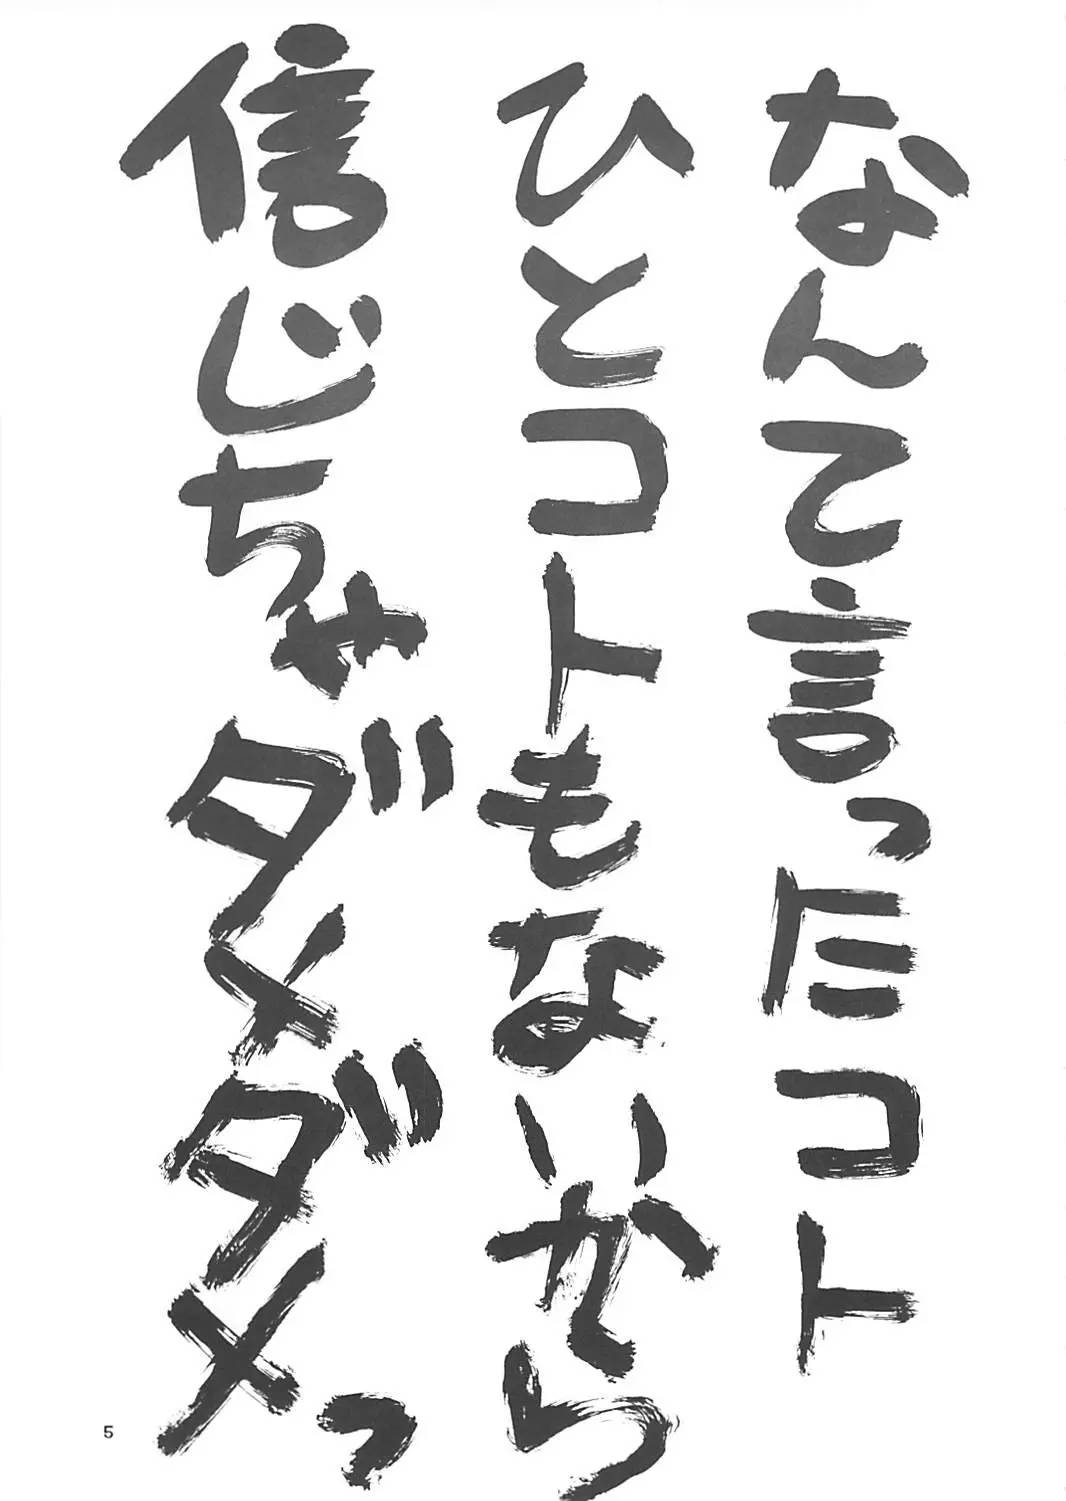 なんて言ったコト
ひとコトもないから
信じちゃダメダメっ
5